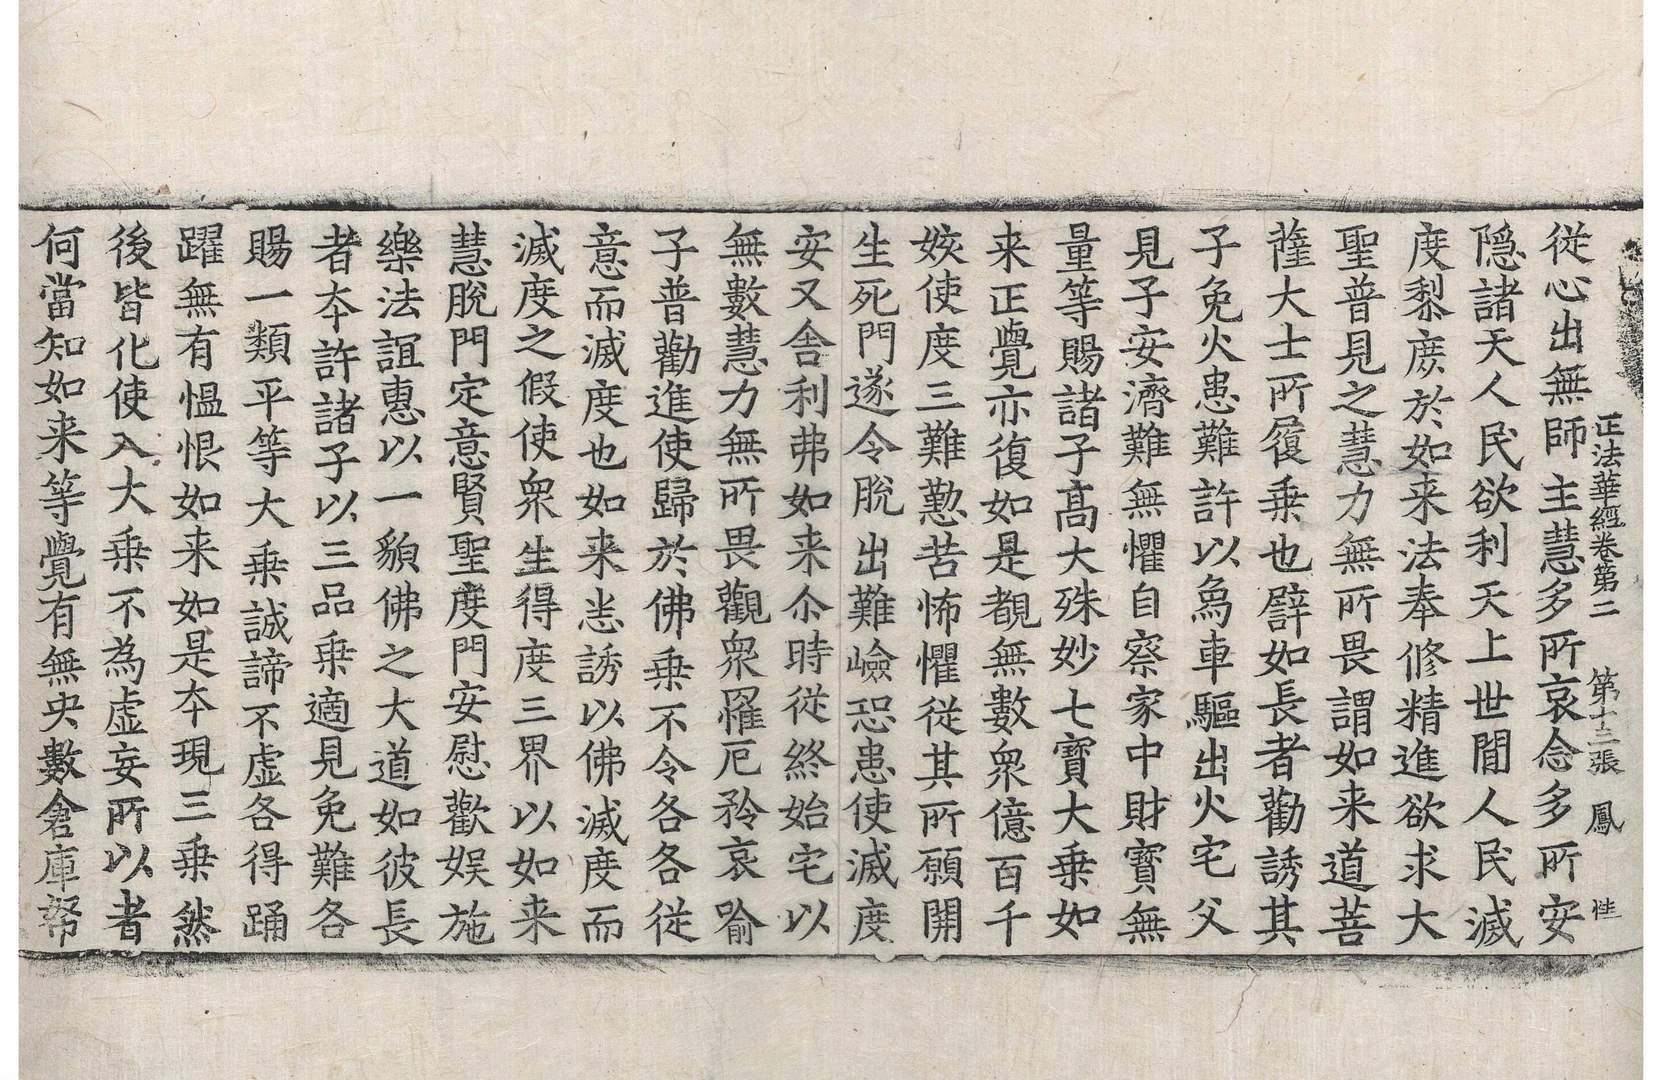 正法華經卷第二 第十三張 鳳 性
從心出無師主慧多所哀念多所安
隱諸天人民欲利天上世間人民滅
度黎庶於如来法奉修精進欲求大
聖普見之慧力無所畏謂如来道菩
薩大士所履乗也譬如長者勸誘其
子免火患難許以爲車驅出火宅父
見子安濟難無懼自察家中財寳無
量等賜諸子高大殊妙七寳大乗如
来正覺亦復如是覩無數衆億百千
姟使度三難懃苦怖懼從其所願開
生死門遂令脫出難嶮恐患使滅度
安又舍利弗如来尒時從終始宅以
無數慧力無所畏觀衆罹厄矜哀喻
子普勸進使歸於佛乗不令各各從
意而滅度也如来悉誘以佛滅度而
滅度之假使衆生得度三界以如来
慧脫門定意賢聖度門安慰歡娱施
樂法誼惠以一貌佛之大道如彼長
者夲許諸子以三品乗適見免難各
賜一類平等大乗誠諦不虛各得踊
躍無有愠恨如来如是夲現三乗然
後皆化使入大乗不為虛妄所以者
何當知如来等覺有無央數倉庫帑